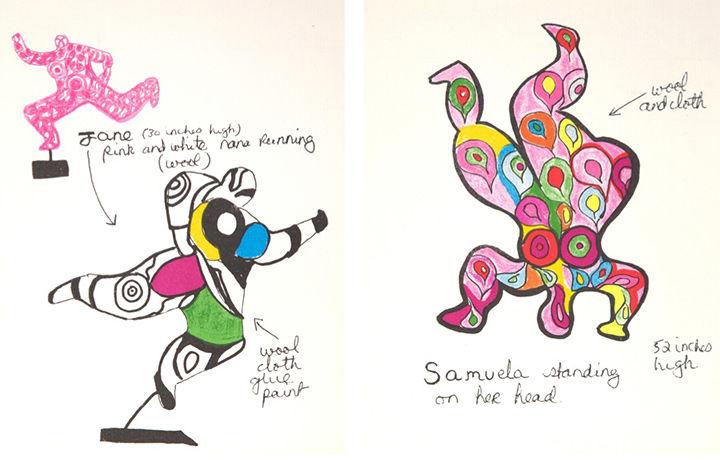 Jane (30 inches high)
Pink and white nana running
(wool)
wool
cloth
glue
paint
wool
and cloth
52 inches
high
Samuela standing
on her head.